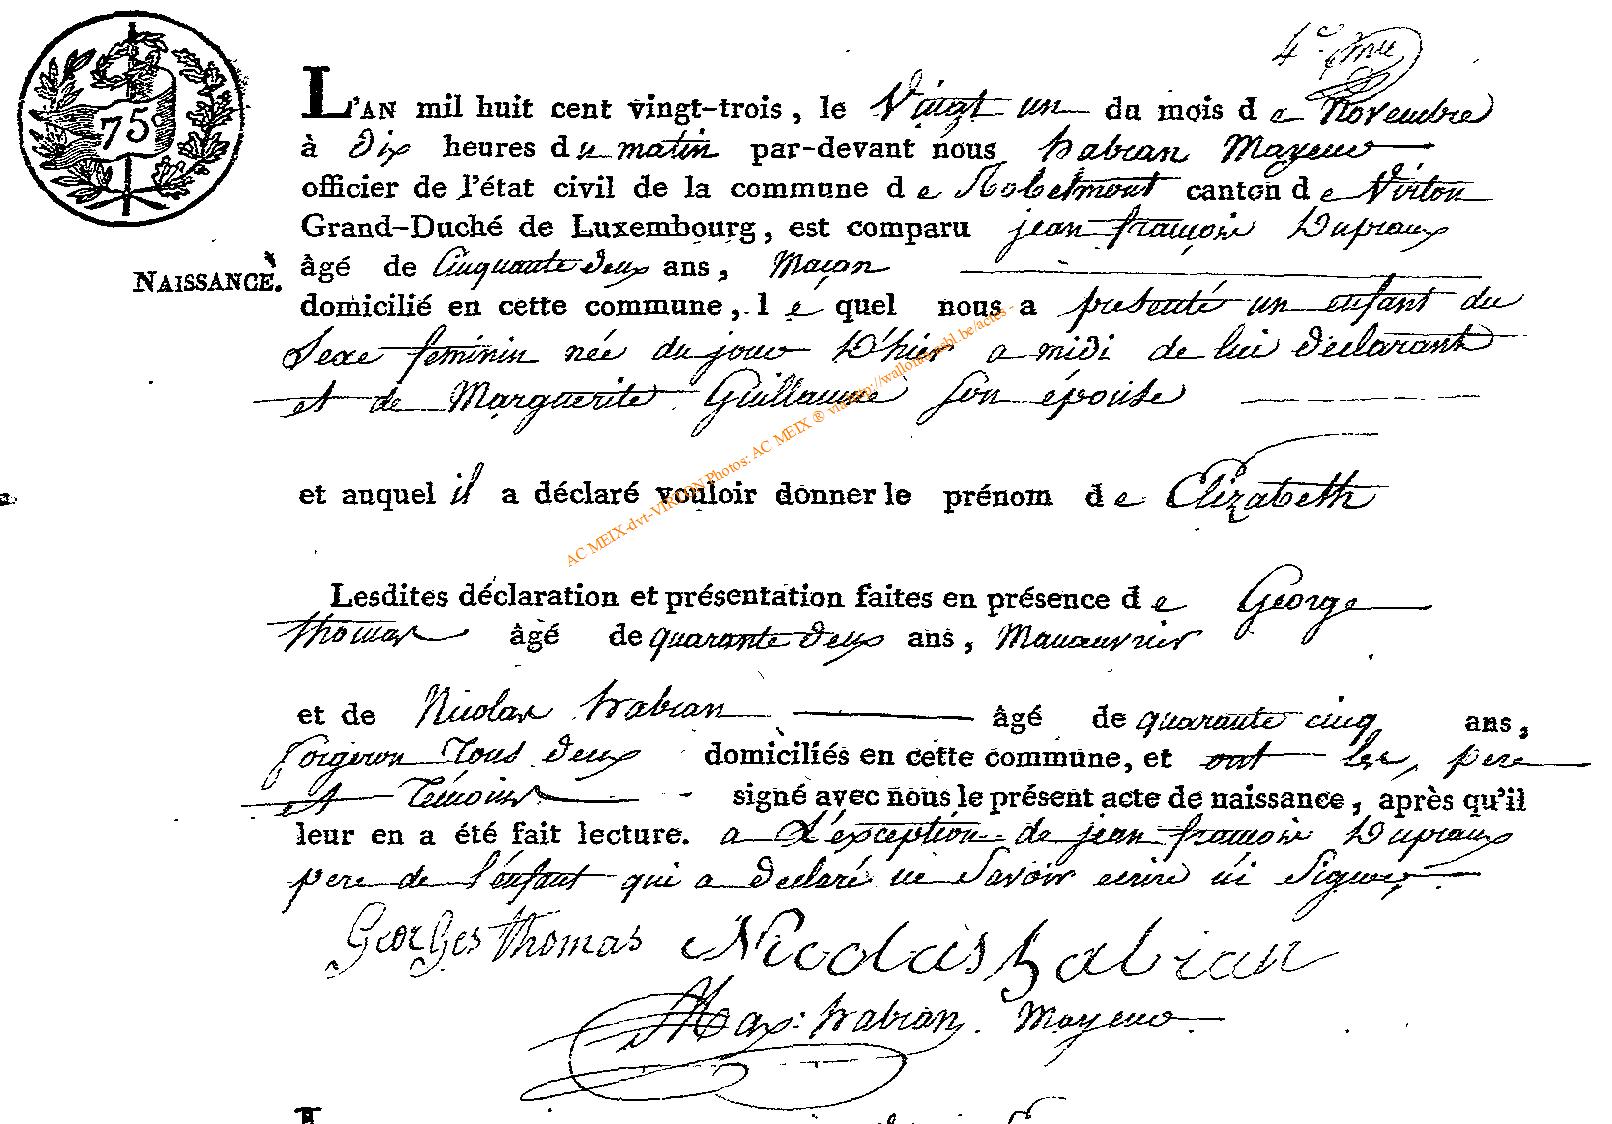 4e.me
75c
L'AN mil huit cent vingt-trois, le Vaingt un du mois de Novembre
à Dix heures du matin par-devant nous habran Mayeur
officier de l'état civil de la commune de Robelmont canton de Virton
Grand-Duché de Luxembourg, est comparu jean françois Dupraux
NAISSANCE.
âgé de Cinquante deux ans, Maçon
domicilié en cette commune, le quel nous a presenté un enfant du
Sexe feminin née du jour D'hier a midi de lui declarant
et de Marguerite Guillaume son épouse
et auquel il a déclaré vouloir donner le prénom de Elizabeth
Lesdites déclaration et présentation faites en présence de George
thomas âgé de quarante deux ans, Manœuvrier
et de Nicolas habran âgé de quarante cinq ans,
forgeron Tous deux domiciliés en cette commune, et ont les, pere
et Témoins signé avec nous le présent acte de naissance, après qu'il
leur en a été fait lecture. a L'exception de jean françois Dupraux
pere de l'enfant qui a declaré ne Savoir ecrire ni Signer
Georges thomas Nicolas habran
Max: habran. Mayeur.
AC MEIX-dvt-VIRTON Photos: AC MEIX ® via http://wallonia.ggbl.be/actes -